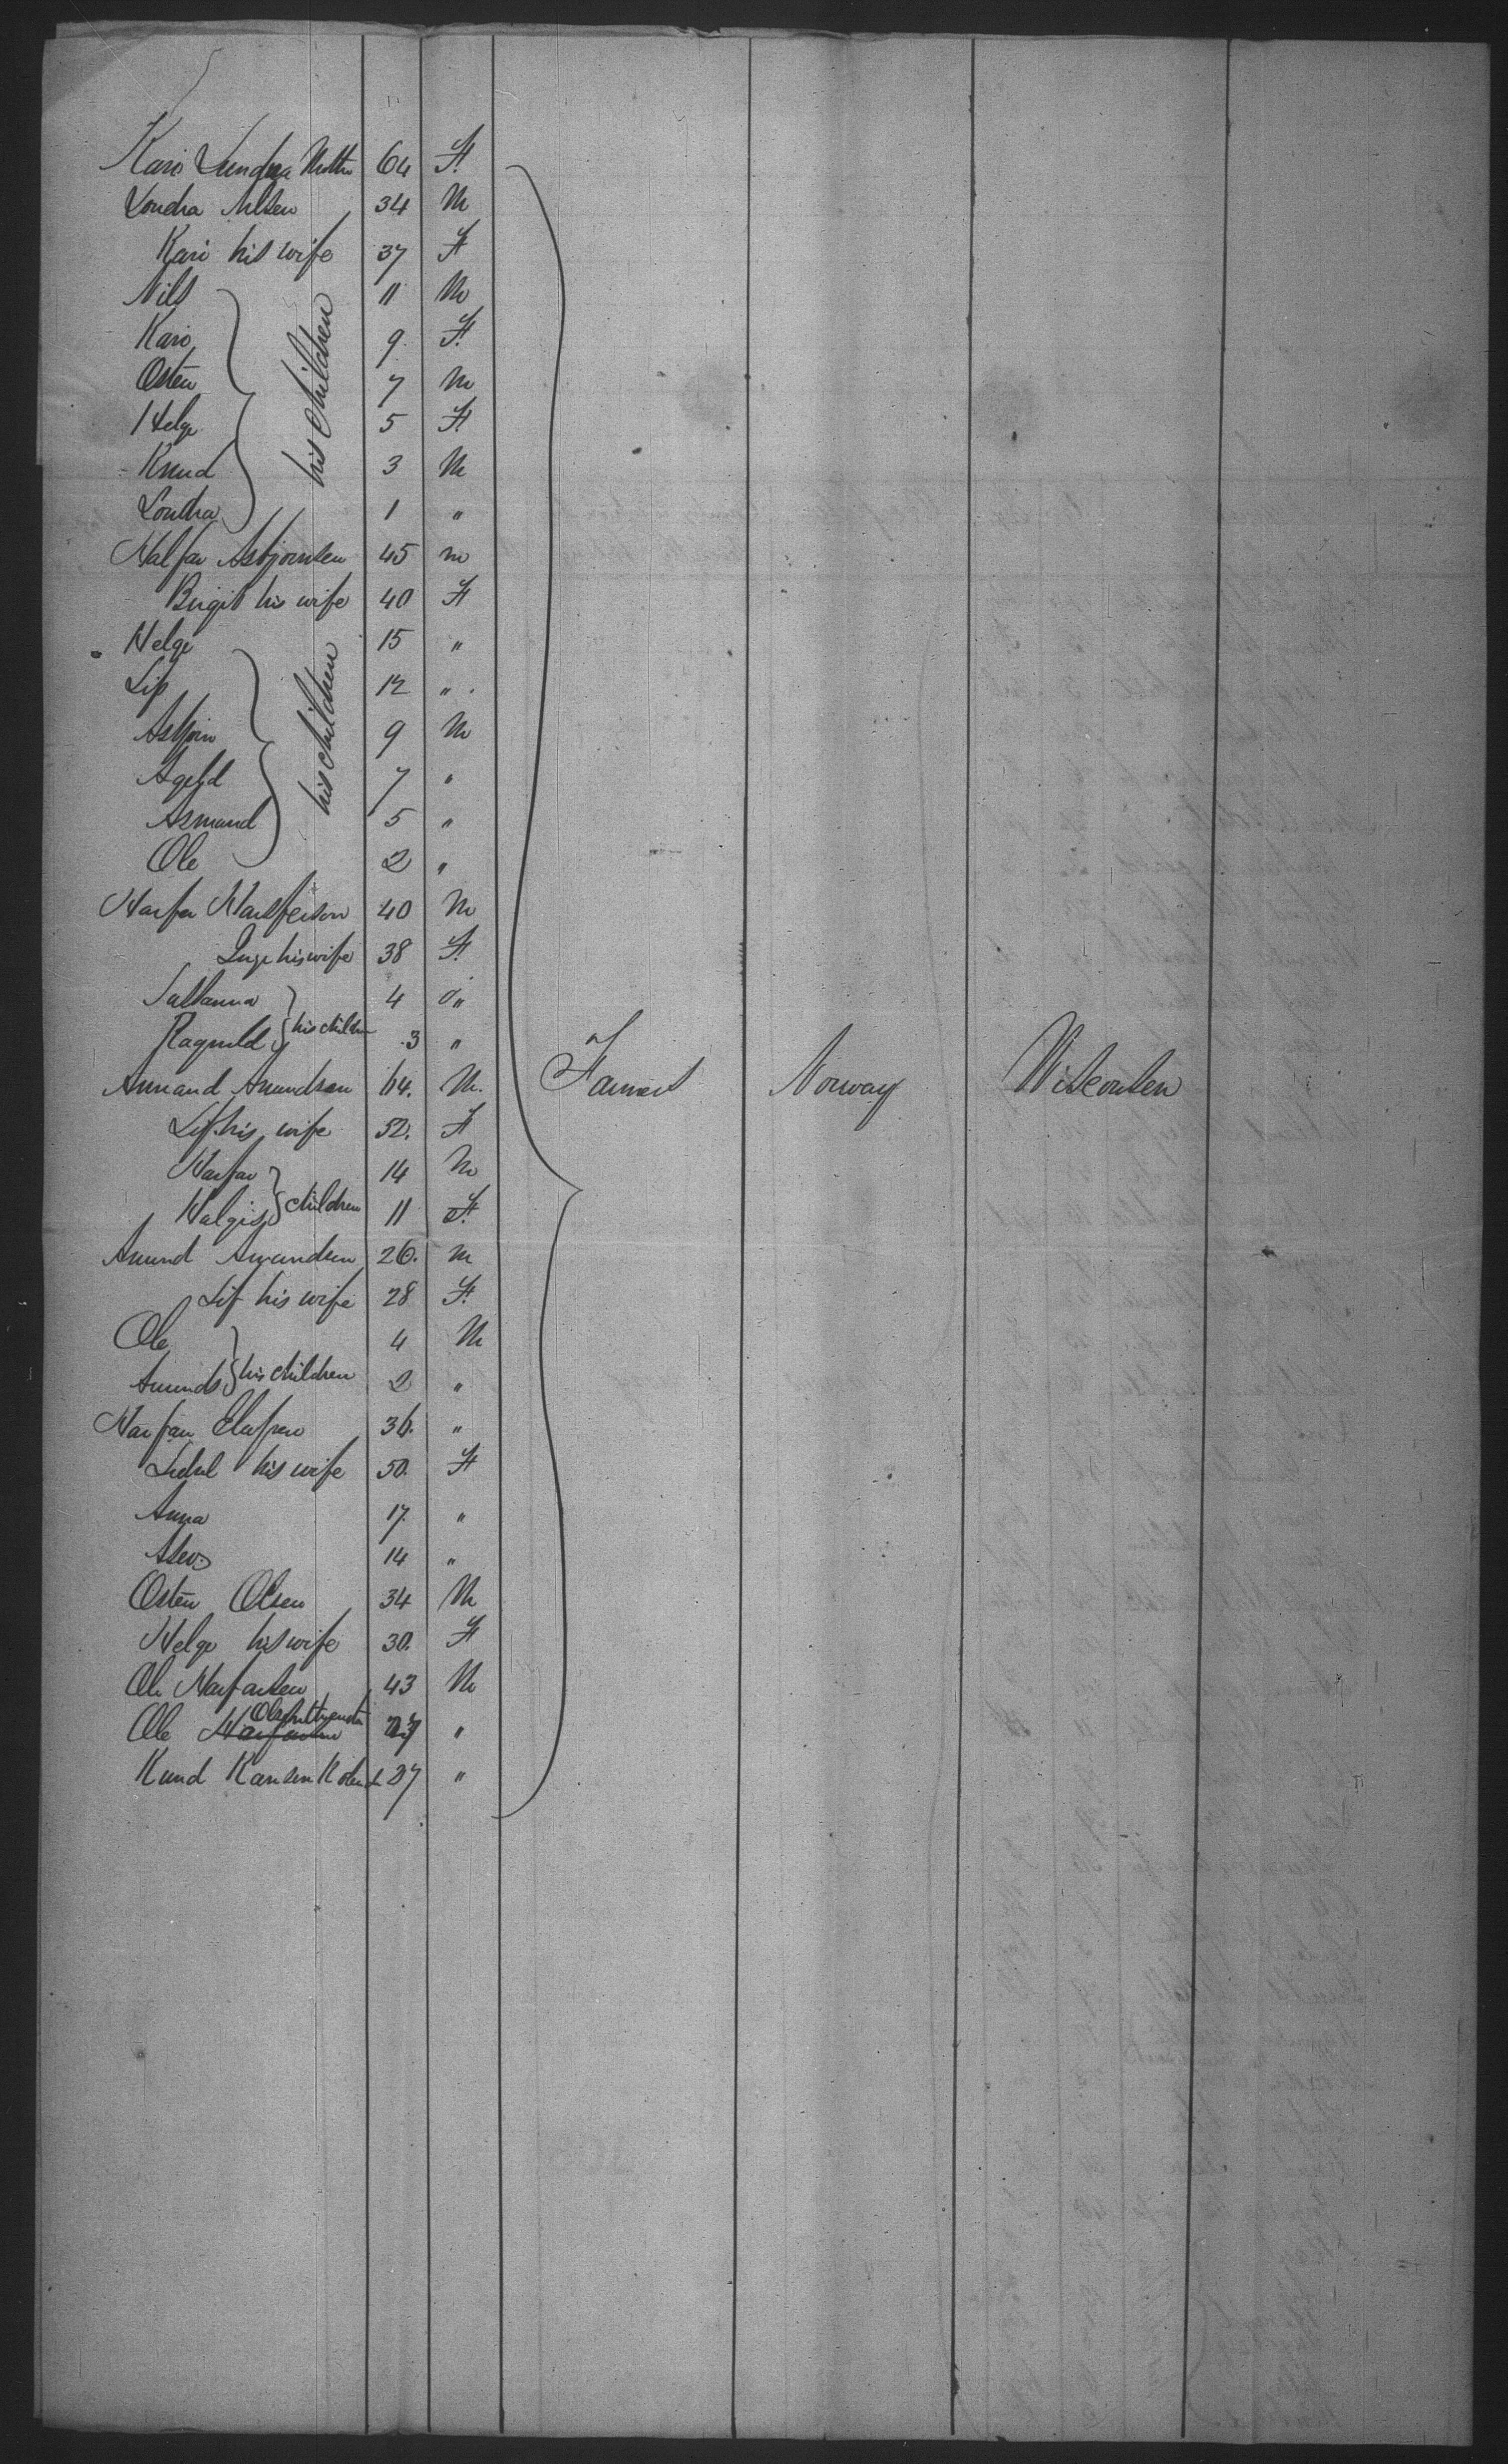 Kari Lundra Mother 64 F.
Londra Nilsen 34 M
Kari his wife 37 F
Nils 11 M
Kari 9 F.
Osten 7 M
Helge 5 F
Knud 3 M
Londra 1 "
his children
Halfar Asbjornsen 45 m
Birgit his wife 40 F
Helge 15 "
Lif 12 "
Asbjorn 9 M
Agelid 7 "
Asmund 5 "
Ole 2 "
his children
Harfar 40 M
Inge his wife 38 F.
4 "
Ragnild 3 "
his children
Amund Amundsen 64. M.
Lif his wife 52. F
Harfar 14 M
11 F.
children
Amund Amundsen 26. m
Lif his wife 28 F.
Ole 4 M
Amunds 2 "
his children
Harfar 36. "
his wife 50. F
Anna 17. "
14 "
Osten Olsen 34 M
Helge his wife 30. F
Ole Harfarsen 43 M
Ole "
Knud 27 "
Farmers Norway Wisconsen